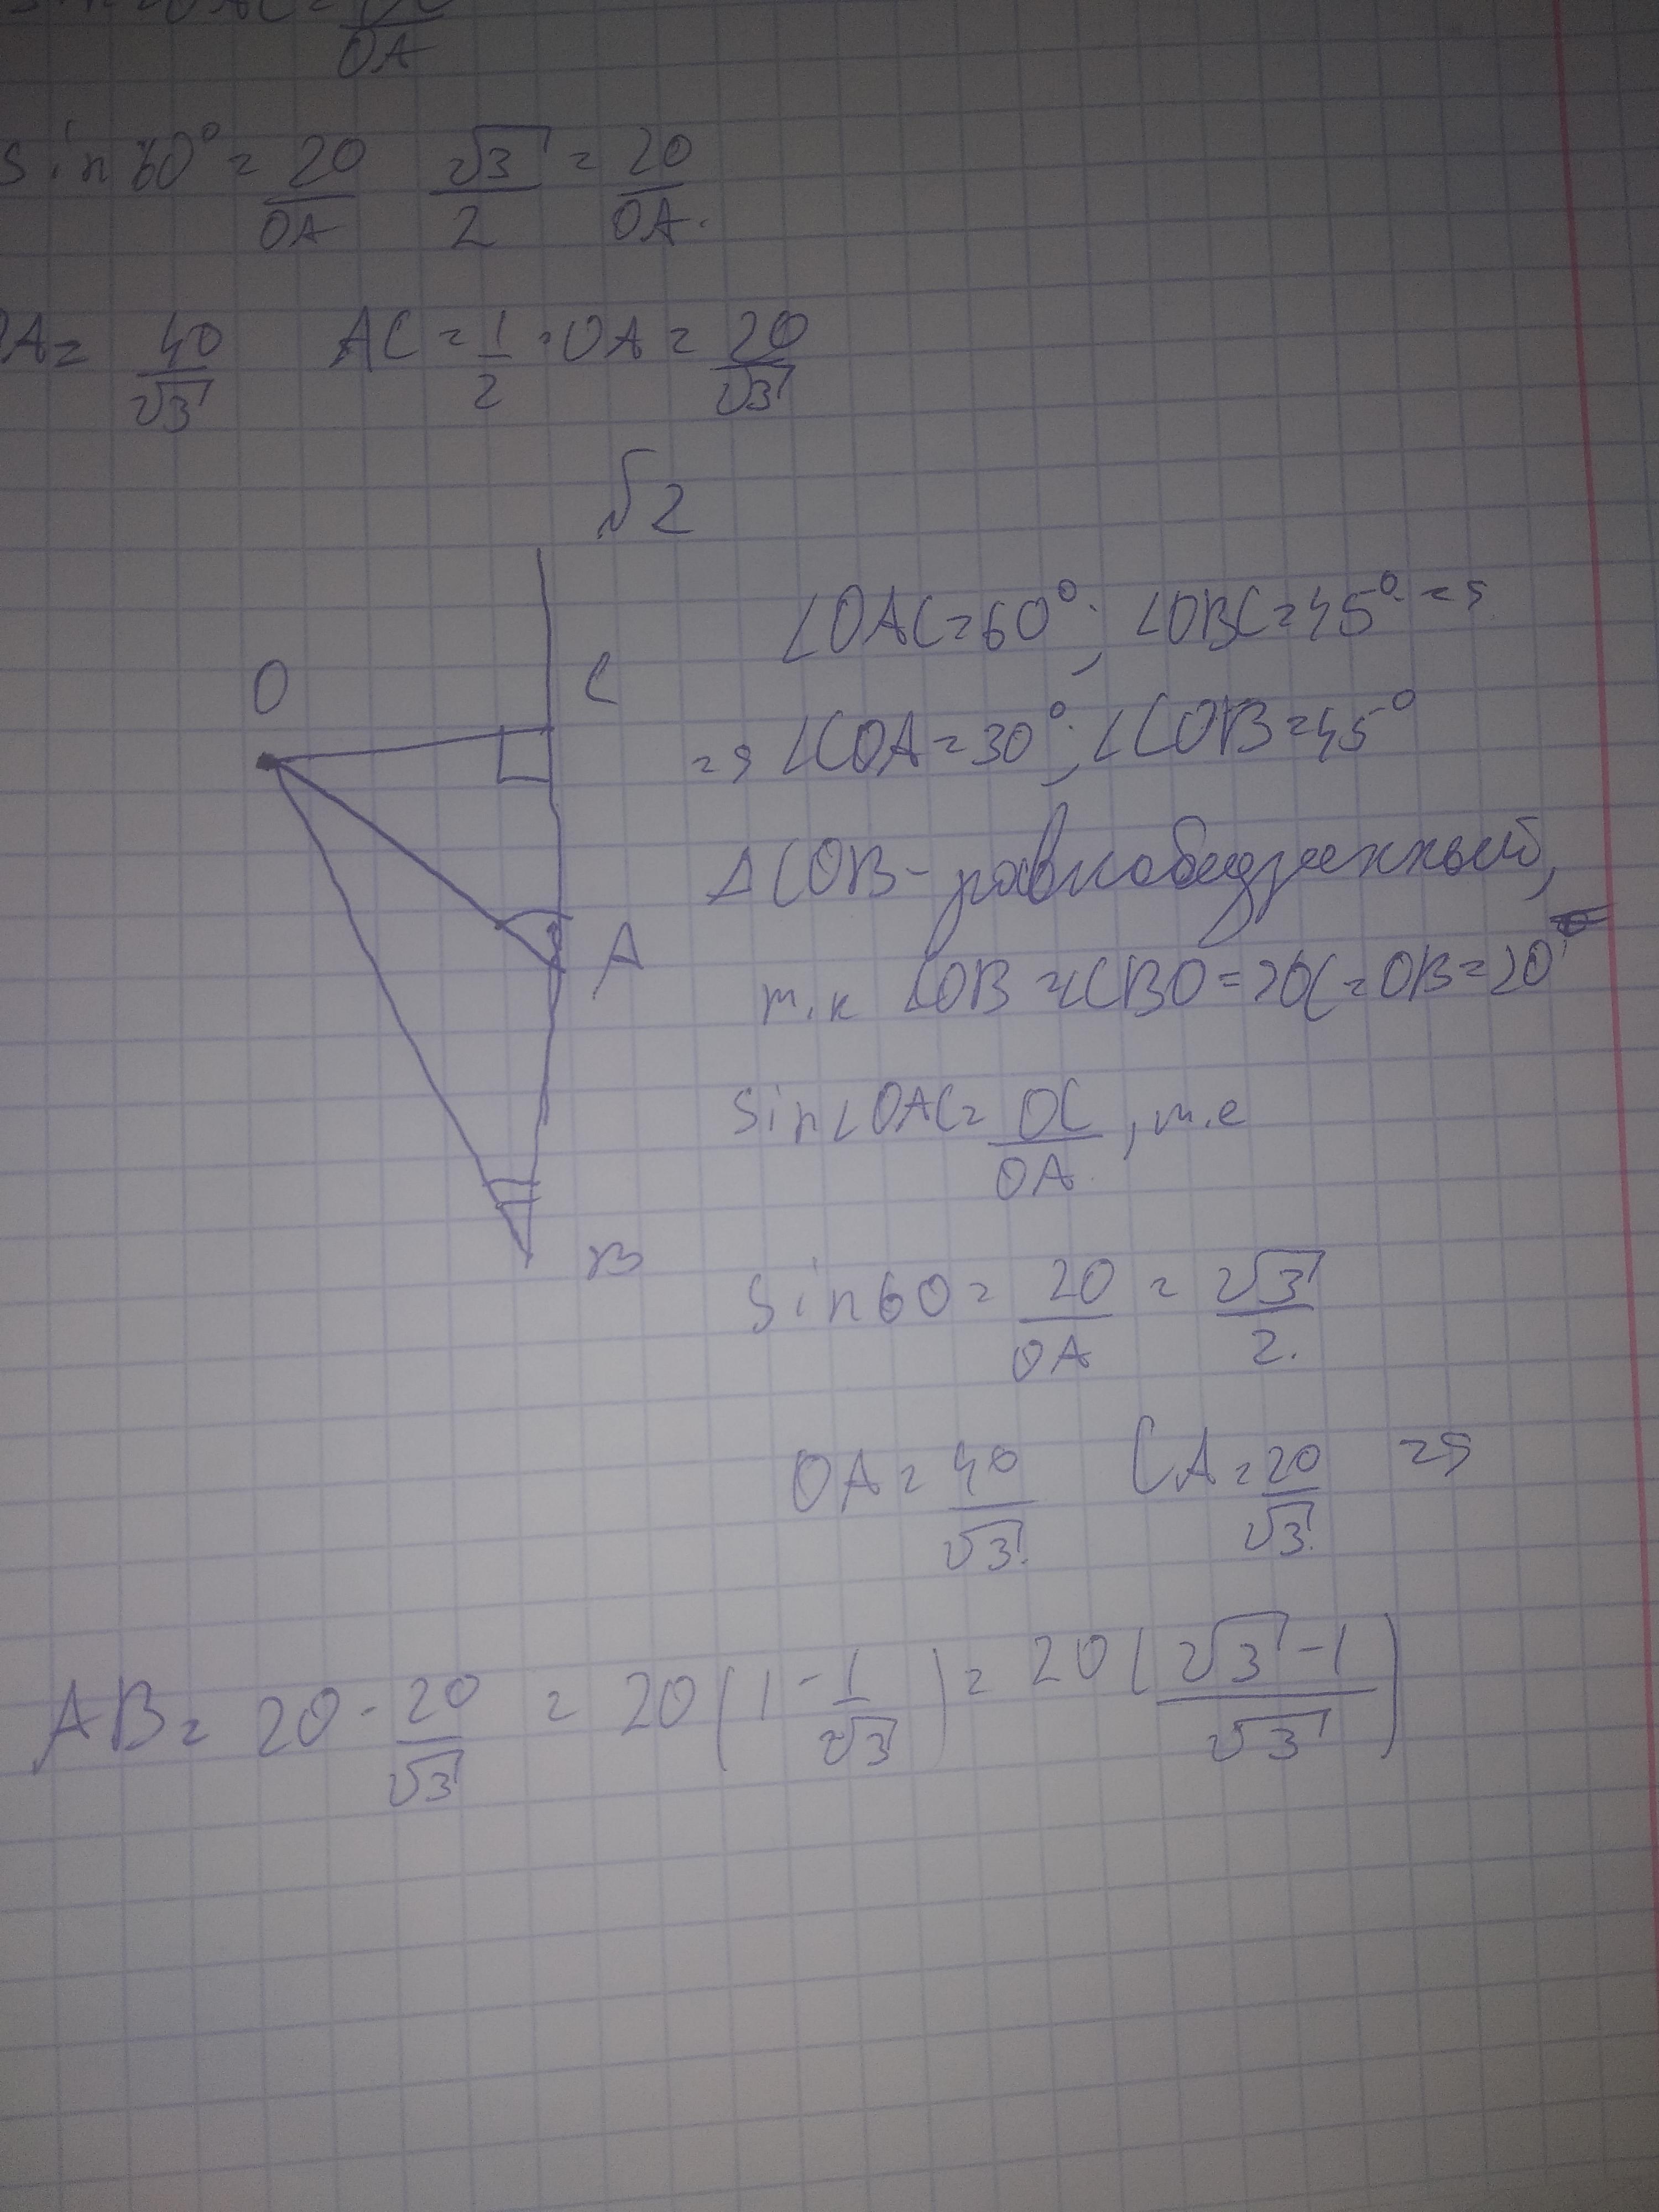 OA
sin 60° = 20/OA √3/2 = 20/OA.
OA = 40/√3 AC = 1/2 · OA = 20/√3
√2
O
C
A
B
∠OAC = 60°; ∠OBC = 45° =>
=> ∠COA = 30°; ∠COB = 45°
△COB - равнобедренный,
т.к ∠OB = ∠CBO => OC = OB = 20
sin∠OAC = OC/OA, т.е
sin60 = 20/OA = √3/2.
OA = 40/√3 CA = 20/√3 =>
AB = 20 - 20/√3 = 20(1 - 1/√3) = 20(√3 - 1/√3)